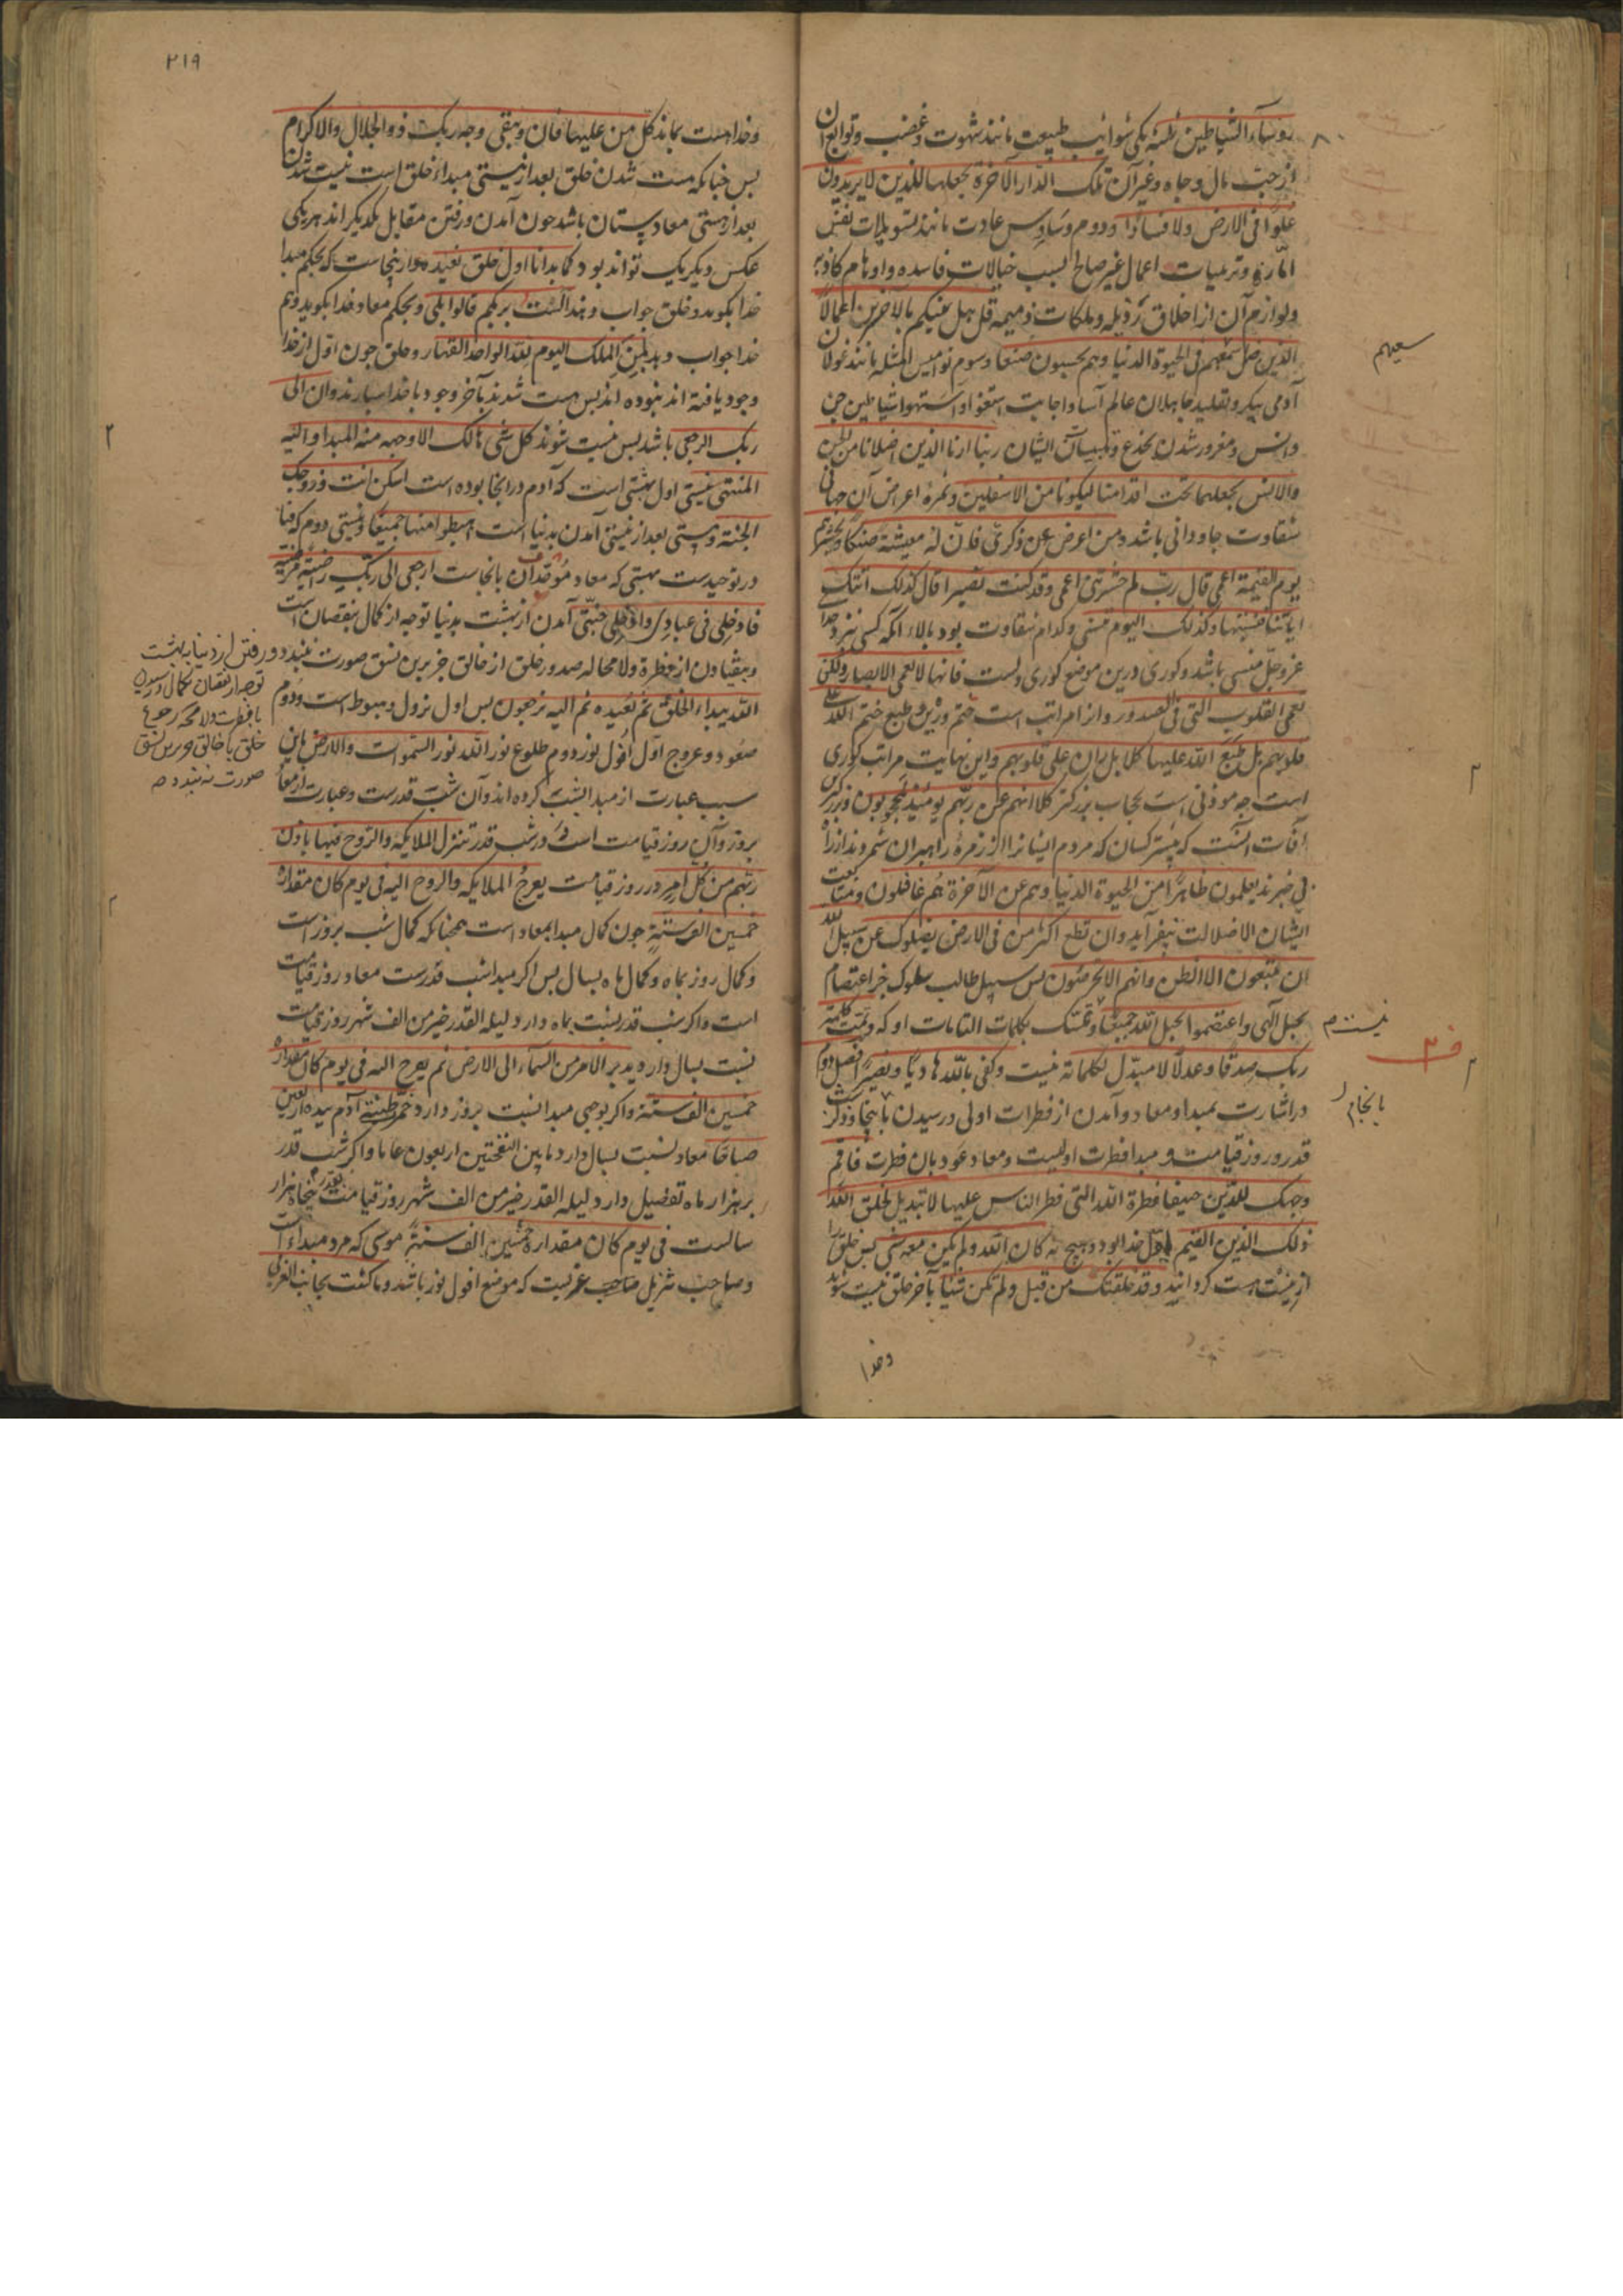 روساء الشیاطین ثلثة یکی شوائب طبیعت مانند شهوت و غضب و توابع آن
از حب مال و جاه و غیر آن تلک الدار الآخرة نجعلها للذین لا یریدون
علوا فی الارض ولا فسادا و دوم وساوس عادت مانند تسویلات نفس
اماره و تزیینات اعمال غیر صالح بسبب خیالات فاسده و اوهام کاذبه
و لوازم آن از اخلاق رذیله و ملکات ذمیمه قل هل ننبئکم بالاخسرین اعمالا
الذین ضل سعیهم فی الحیوة الدنیا و هم یحسبون صنعا و سوم نوامیس امثله مانند غولان
سعیهم
آدمی پیکر و تقلید جاهلان عالم آسا و اجابت استغوا و استهواء شیاطین جن
و انس و مغرور شدن بخدع و تلبیسات ایشان ربنا ارنا الذین اضلانا من الجن
والانس نجعلهما تحت اقدامنا لیکونا من الاسفلین و ثمرهٔ اعراض آن جهانی
شقاوت جاودانی باشد و من اعرض عن ذکری فان له معیشة ضنکا و نحشره
یوم القیمة اعمی قال رب لم حشرتنی اعمی و قد کنت بصیرا قال کذلک اتتک
آیاتنا فنسیتها و کذلک الیوم تنسی و کدام شقاوت بود بالاء آنکه کسی نزد خدا
عز و جل منسی باشد و کوری درین موضع کوری دلست فانها لا تعمی الابصار ولکن
تعمی القلوب التی فی الصدور و از امراتب است ختم و رین و طبع ختم الله علی
قلوبهم بل طبع الله علیها کلا بل ران علی قلوبهم و این نهایت مراتب کوری
است چه موذنی است بحجاب بزرکتر کلا انهم عن ربهم یومئذ لمحجوبون و بزرکترین
آفات آنست که بیشتر کسان که مردم ایشانرا از زمرهٔ راهبران شمرند از راه
بی خبرند یعلمون ظاهرا من الحیوة الدنیا و هم عن الآخرة هم غافلون و متابعت
ایشان الا ضلالت نیفزاید و ان تطع اکثر من فی الارض یضلوک عن سبیل الله
ان یتبعون الا الظن و انهم الا یخرصون پس سبیل طالب سلوک جز اعتصام
بحبل الهی واعتصموا بحبل الله جمیعا و تمسک بکلمات التامات او که و تمت کلمة
نیست م
ربک صدقا و عدلا لا مبدل لکلماته نیست و کفی بالله هادیا و نصیرا فصل دوم
در اشارت بمبدا و معاد و آمدن از فطرات اولی و رسیدن باینجا و ذکر شب
بانجام
قدر و روز قیامت و مبدا فطرت اولیست و معاد عود بان فطرت فاقم
وجهک للدین حنیفا فطرة الله التی فطر الناس علیها لا تبدیل لخلق الله
ذلک الدین القیم اول خدا بود و هیچ نه کان الله و لم یکن معه شی پس خلق را
از نیست هست کردانید و قد خلقتک من قبل و لم تکن شیئا بآخر خلق نیست شوند
و خدا
۲۱۹
و خدا هست بماند کل من علیها فان و یبقی وجه ربک ذو الجلال والاکرام
پس چنانکه هست شدن خلق بعد از نیستی مبداء خلق است نیست شدن
بعد از هستی معاد یستان باشد چون آمدن و رفتن مقابل یکدیکر اند هر یکی
عکس دیکریک تواند بود کما بدانا اول خلق نعیده و از ینجاست که بحکم مبدا
خدا بکوید و خلق جواب دهند الست بربکم قالوا بلی و بحکم معاد خدا بکوید و هم
خدا جواب دهد لمن الملک الیوم لله الواحد القهار و خلق چون اول از خدا
وجود یافته اند نبوده اند پس هست شدند بآخر وجود با خدا سپارند و ان الی
ربک الرجعی باشد پس نیست شوند کل شی هالک الا وجهه منه المبدا و الیه
المنتهی نیستی اول بهشتی است که آدم در آنجا بوده است اسکن انت و زوجک
الجنة و هستی بعد از نیستی آمدن بدنیا است اهبطوا منها جمیعا و نیستی دوم که فنا
در توحیدست بهشتی که معاد موحدان بانجاست ارجعی الی ربک راضیة مرضیة
فادخلی فی عبادی وادخلی جنتی آمدن از بهشت بدنیا توجه از کمال بنقصان است
و بیفتادن از فطرة و لا محاله صدور خلق از خالق جز برین نسق صورت نبندد و
رفتن از دنیا ببهشت
توجه از نقصان بکمال و رسیدن
با فطرت و لا محاله رجوع
خلق با خالق جز برین نسق
صورت نه بندد صح
الله یبداء الخلق ثم یعیده ثم الیه ترجعون پس اول نزول و هبوط است و دوم
صعود و عروج اول افول نور دوم طلوع نور الله نور السموات والارض باین
سبب عبارت از مبدا بشب کرده اند و آن شب قدرست و عبارت از معاد
بروز و آن روز قیامت است در شب قدر تنزل الملایکة والروح فیها باذن
ربهم من کل امر در روز قیامت یعرج الملایکة والروح الیه فی یوم کان مقداره
خمسین الف سنة چون کمال مبدا بمعاد است همچنانکه کمال شب بروز است
و کمال روز بماه و کمال ماه بسال پس اکر مبدا شب قدرست معاد روز قیامت
است و اکر شب قدر نسبت بماه دارد لیلة القدر خیر من الف شهر روز قیامت
نسبت بسال دارد یدبر الامر من السماء الی الارض ثم یعرج الیه فی یوم کان مقداره
خمسین الف سنة و اکر بوجهی مبدا نسبت بروز دارد خمرت طینة آدم بیده اربعین
صباحا معاد نسبت بسال دارد ما بین النفختین اربعون عاما و اکر شب قدر
بر هزار ماه تفضیل دارد لیلة القدر خیر من الف شهر روز قیامت بقدر پنجاه هزار
سالست فی یوم کان مقداره خمسین الف سنة موسی که مرد مبداء است
و صاحب تنزیل صاحب غربیت که موضع افول نور باشد و ما کنت بجانب الغربی